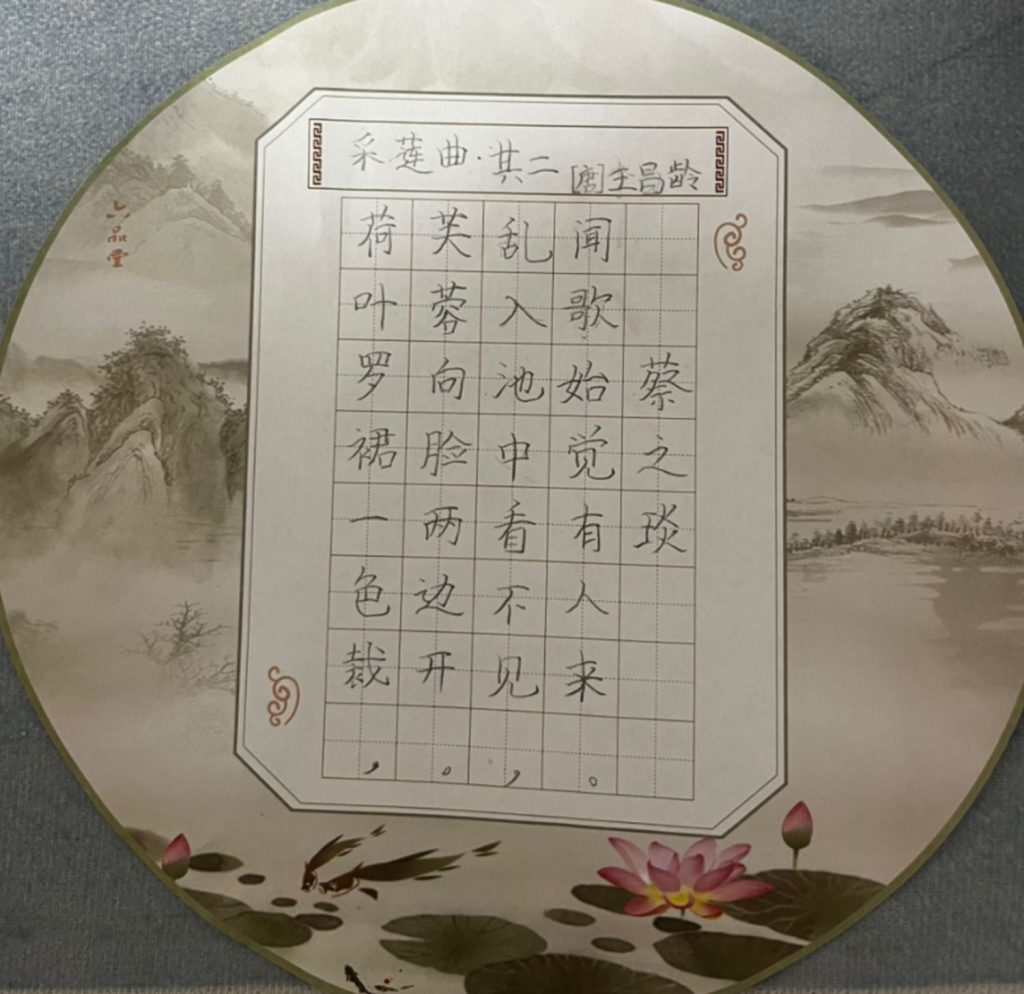 采莲曲·其二 [唐]王昌龄
荷叶罗裙一色裁，
芙蓉向脸两边开。
乱入池中看不见，
闻歌始觉有人来。
蔡之琰
六品堂